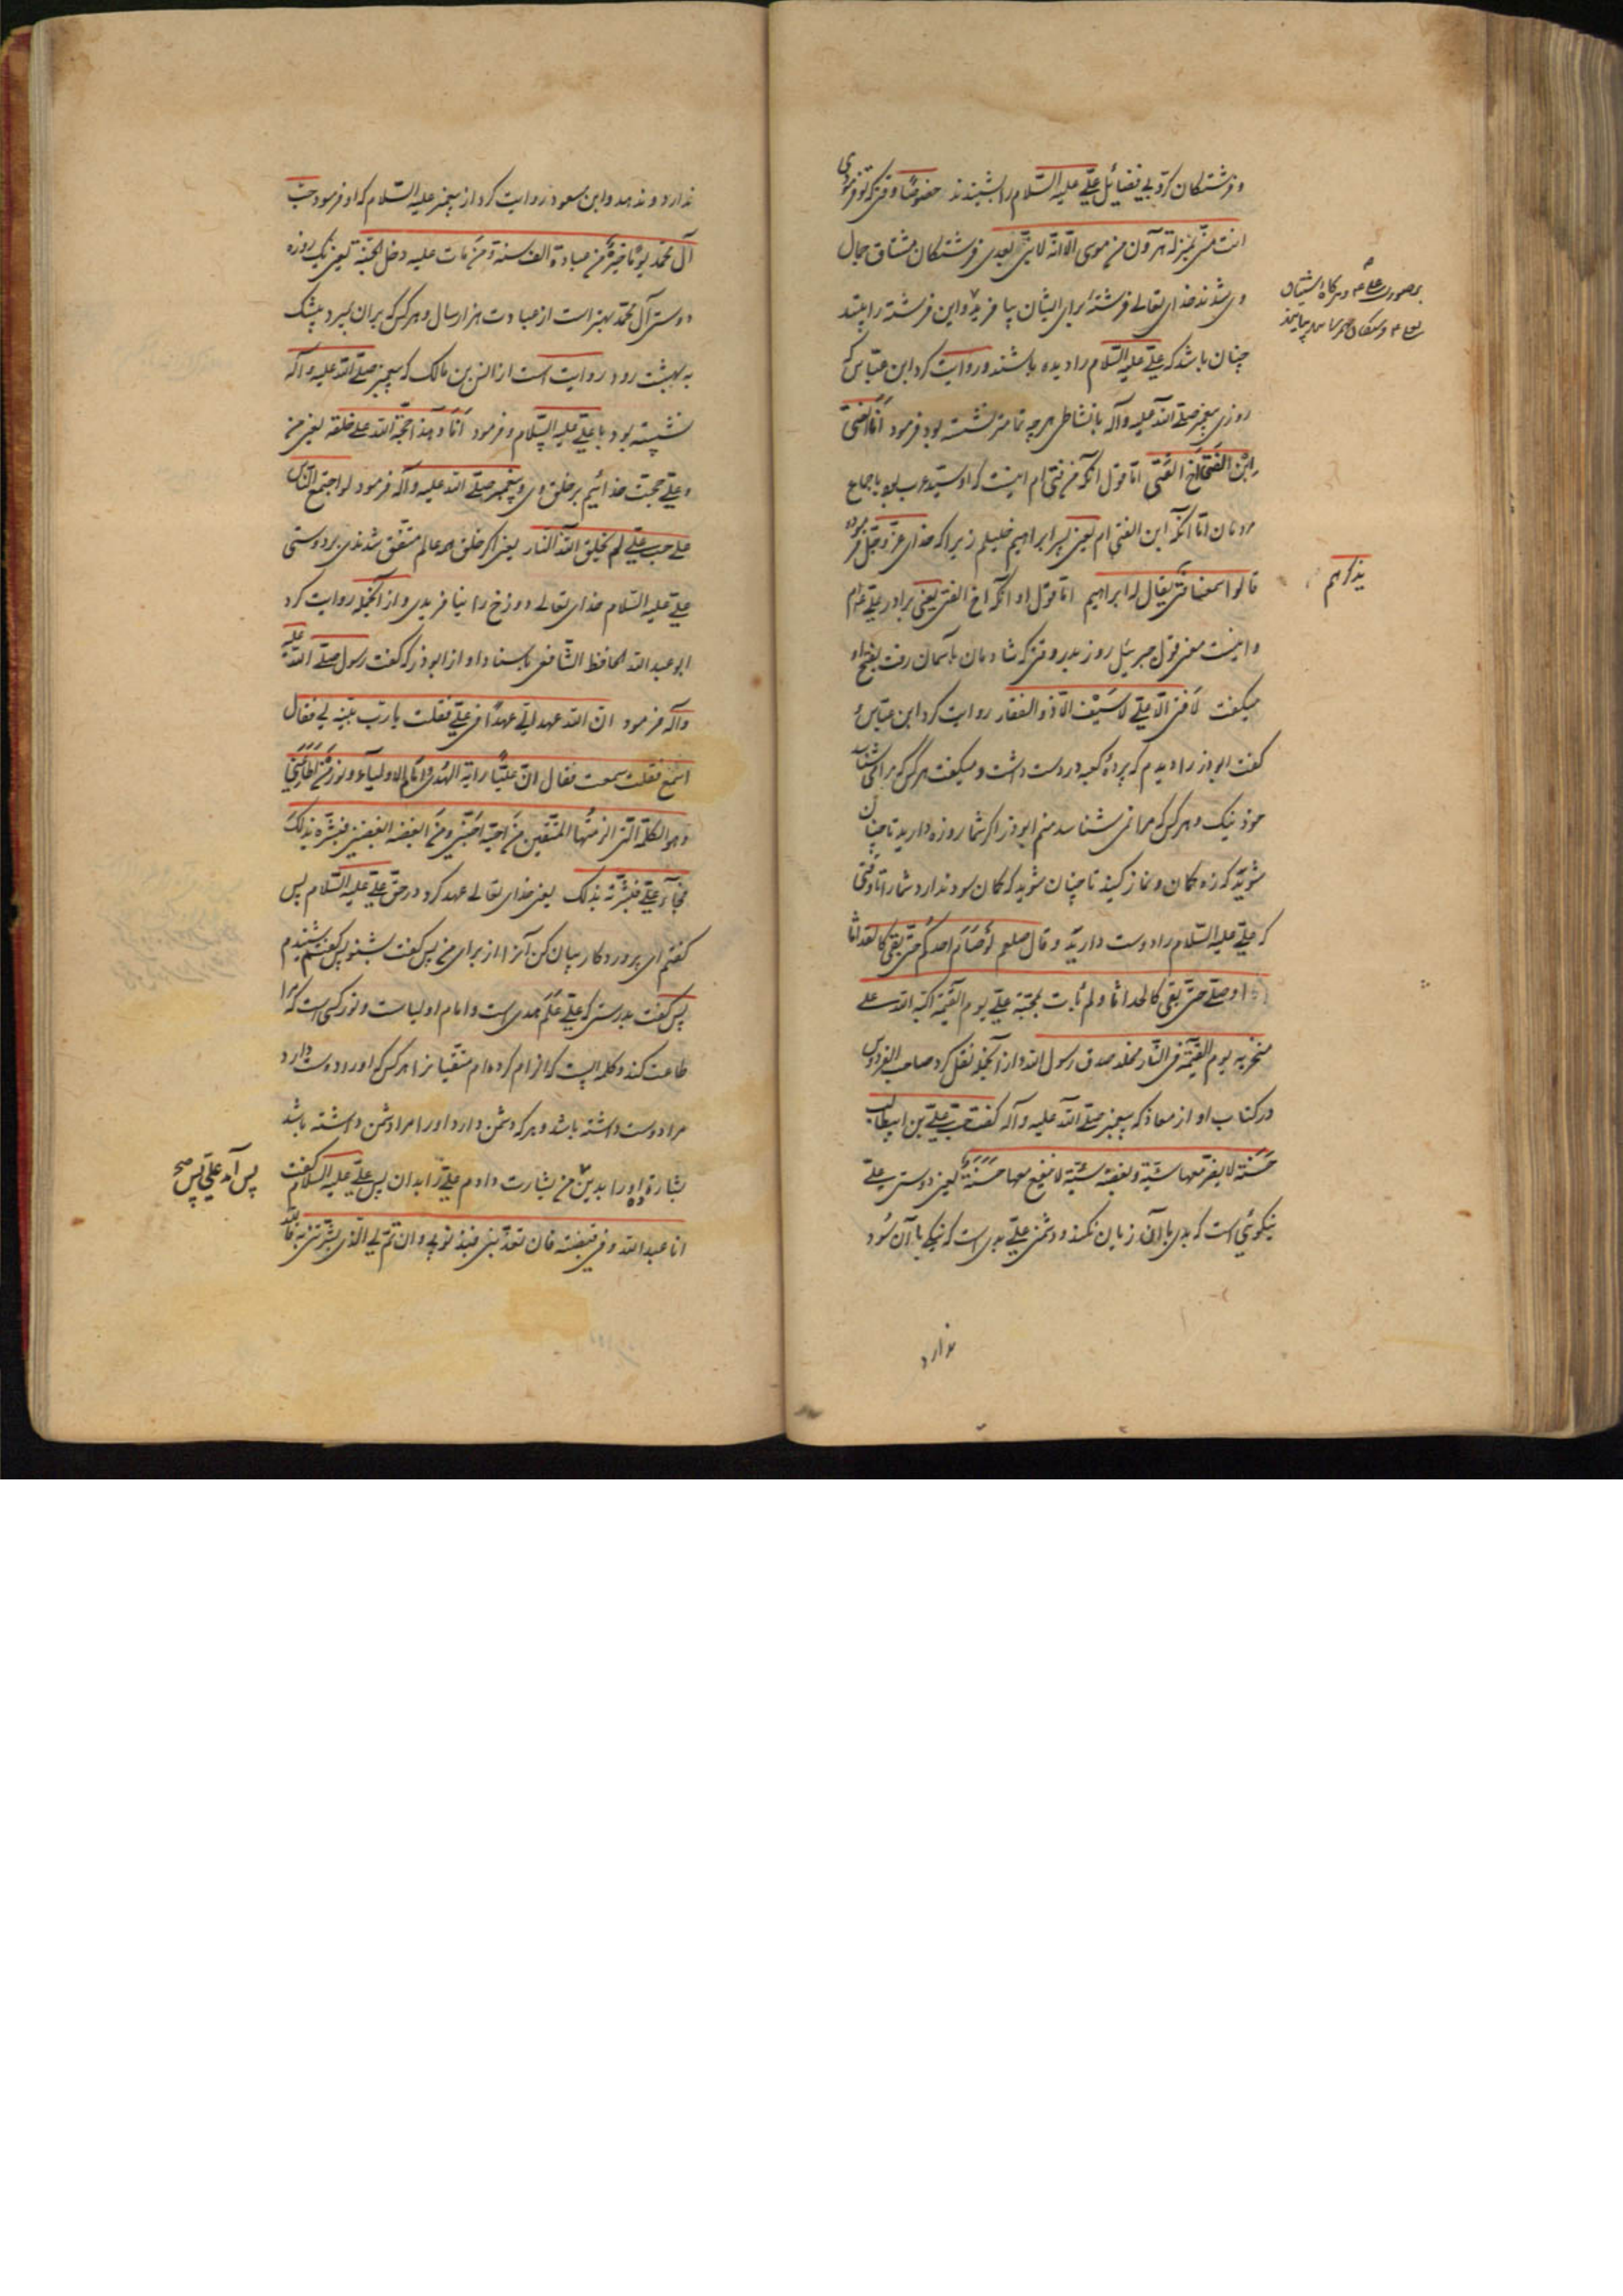 و فرشتگان کروبی فضائل علی علیه السّلام را بشنیدند خصوصًا وقتی که تو فرمودی
انت منّی بمنزلة هرون من موسی الّا انّه لا نبی بعدی فرشتگان مشتاق جمال
وی شدند خدای تعالی فرشتهٔ برای ایشان بیافرید و این فرشته را بیند
چنان باشد که علی علیه السّلام را دیده باشند و روایت کرد ابن عبّاس که
روزی پیغمبر صلّی الله علیه و آله با نشاطی هر چه تمامتر نشسته بود فرمود اَنَا الفتی
اِبْن الفتی اَخ الفَتی امّا قول آنکه من فتی ام اینست که او سیّد عرب بود باجماع
مردمان امّا آنکه ابن الفتی ام یعنی پسر ابراهیم خلیلم زیرا که خدای عزّ و جلّ فرموده
قالوا سمعنا فتی یقال له ابراهیم امّا قول او آنکه اخ الفتی یعنی برادر علی ام
یذکرهم
و اینست معنی قول جبرئیل روز بدر وقتی که شادمان بآسمان رفت بفتح او
میگفت لا فتی الّا علی لا سَیْف الّا ذو الفقار روایت کرد ابن عبّاس و
گفت ابوذر را دیدم که پردهٔ کعبه در دست داشت و میگفت هر کس که مرا می شناسد
خود نیک و هر کس که مرا نمی شناسد منم ابوذر اگر شما روزه دارید تا چنان
شوید که زه کمان و نماز کنید تا چنان شوید که کمان سود ندارد شما را تا وقتی
که علی علیه السّلام را دوست دارید و قال صلعم لو صَامَ احدکم حتّی بقی کالوتد اثما
او صلّی حتّی بقی کالحد اثما و لم یأت بمحبّة علی یوم القیمة اکبّه الله علی
منخریه یوم القیمة فی النّار مخلّد صدق رسول الله و از آنجمله نقل کرد صاحب الفردوس
در کتاب او از معاذ که پیغمبر صلّی الله علیه و آله گفت حبّ علی بن ابیطالب
حَسَنة لا یضرّ معها سیّئة و بغضه سیّئة لا ینفع معها حَسَنَة یعنی دوستی علی
نیکوئی است که بدی با آن زیان نکند و دشمنی علی بدی است که نیکی با آن سود
ندارد
ندارد و ندهد و ابن مسعود روایت کرد از پیغمبر علیه السّلام که او فرمود حبّ
آل محمّد یومًا خیرٌ من عبادة الف سنة و من مات علیه دخل الجنّة یعنی یک روزه
دوستی آل محمّد بهتر است از عبادت هزار سال و هر کس که بر آن بمیرد بیشک
به بهشت رود روایت است از انس بن مالک که پیغمبر صلّی الله علیه و آله
نشسته بود با علی علیه السّلام و فرمود اَنَا و هذا حجّة الله علی خلقه یعنی من
و علی حجت خدائیم بر خلق وی و پیغمبر صلّی الله علیه و آله فرمود لو اجتمع النّاس
علی حب علی لم یخلق الله النّار یعنی اگر خلق همه عالم متّفق شدندی بر دوستی
علی علیه السّلام خدای تعالی دوزخ را نیافریدی و از آنجمله روایت کرد
ابو عبد الله الحافظ الشّافعی باسناد او از ابوذر که گفت رسول صلّی الله علیه
و آله فرمود انّ الله عهد الیّ عهدًا فی علی فقلت یا ربّ بیّنه لی فقال
اسْمع فقلت سمعت فقال انّ علیًّا رایة الهُدی و امام الاولیاء و نور مَنْ اَطاعَنی
و هو الکلمة الّتی الزمتُها المتّقین مَن احبّه احبّنی و مَن ابغضه ابغضنی فبشّره بذلک
فجآء علی فبشّرته بذلک یعنی خدای تعالی عهد کرد در حق علی علیه السّلام پس
گفتم ای پروردگار بیان کن آنرا از برای من پس گفت بشنو پس گفتم شنیدم
پس گفت بدرستی که علی عَلَم هدی است و امام اولیاست و نور کسی است که مرا
طاعت کند و کلمه ایست که الزام کرده ام متّقیانرا هر کس که او را دوست دارد
مرا دوست داشته باشد و هر که دشمن دارد او را مرا دشمن داشته باشد
بشارة ده او را بدین من بشارت دادم علی را بدان پس علی علیه السّلام گفت
پس آمد علی پس صح
انا عبد الله و فی قبضته فان یعذّبنی فبذنوبی و ان تمّ لی الّذی بشّرتنی به فالله